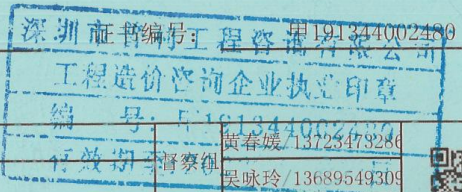 证书编号： 甲191344002480
深圳市 工程咨询有限公司
工程造价咨询企业执业印章
编 号：甲191344002480
有效期
督察组
黄春媛/13723473286
吴咏玲/13689549309